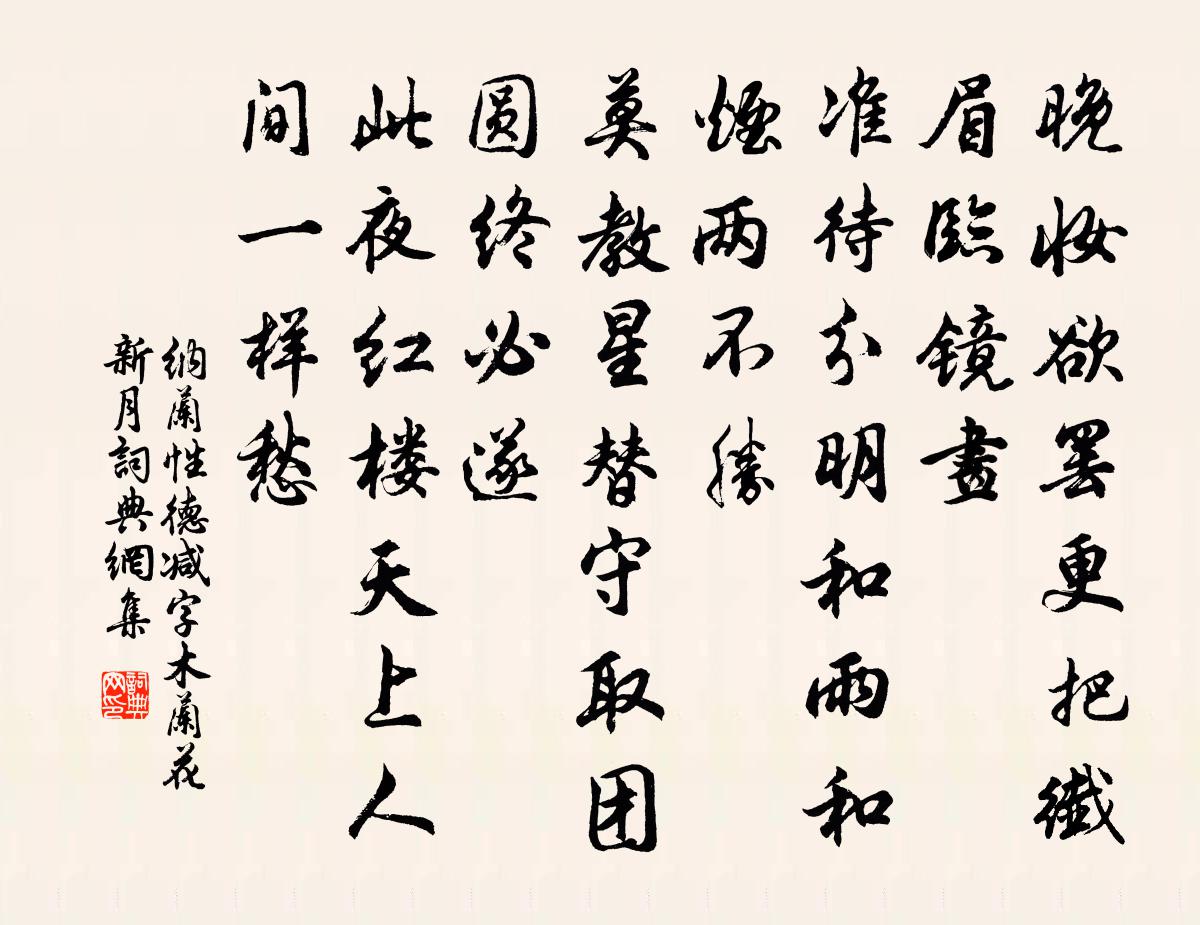 晚妆欲罢更把纖
眉臨镜畫
准待分明和雨和
煙两不勝
莫教星替守取团
圆终必遂
此夜红楼天上人
间一样愁
纳蘭性德减字木蘭花
新月詞典網集
詞典网印